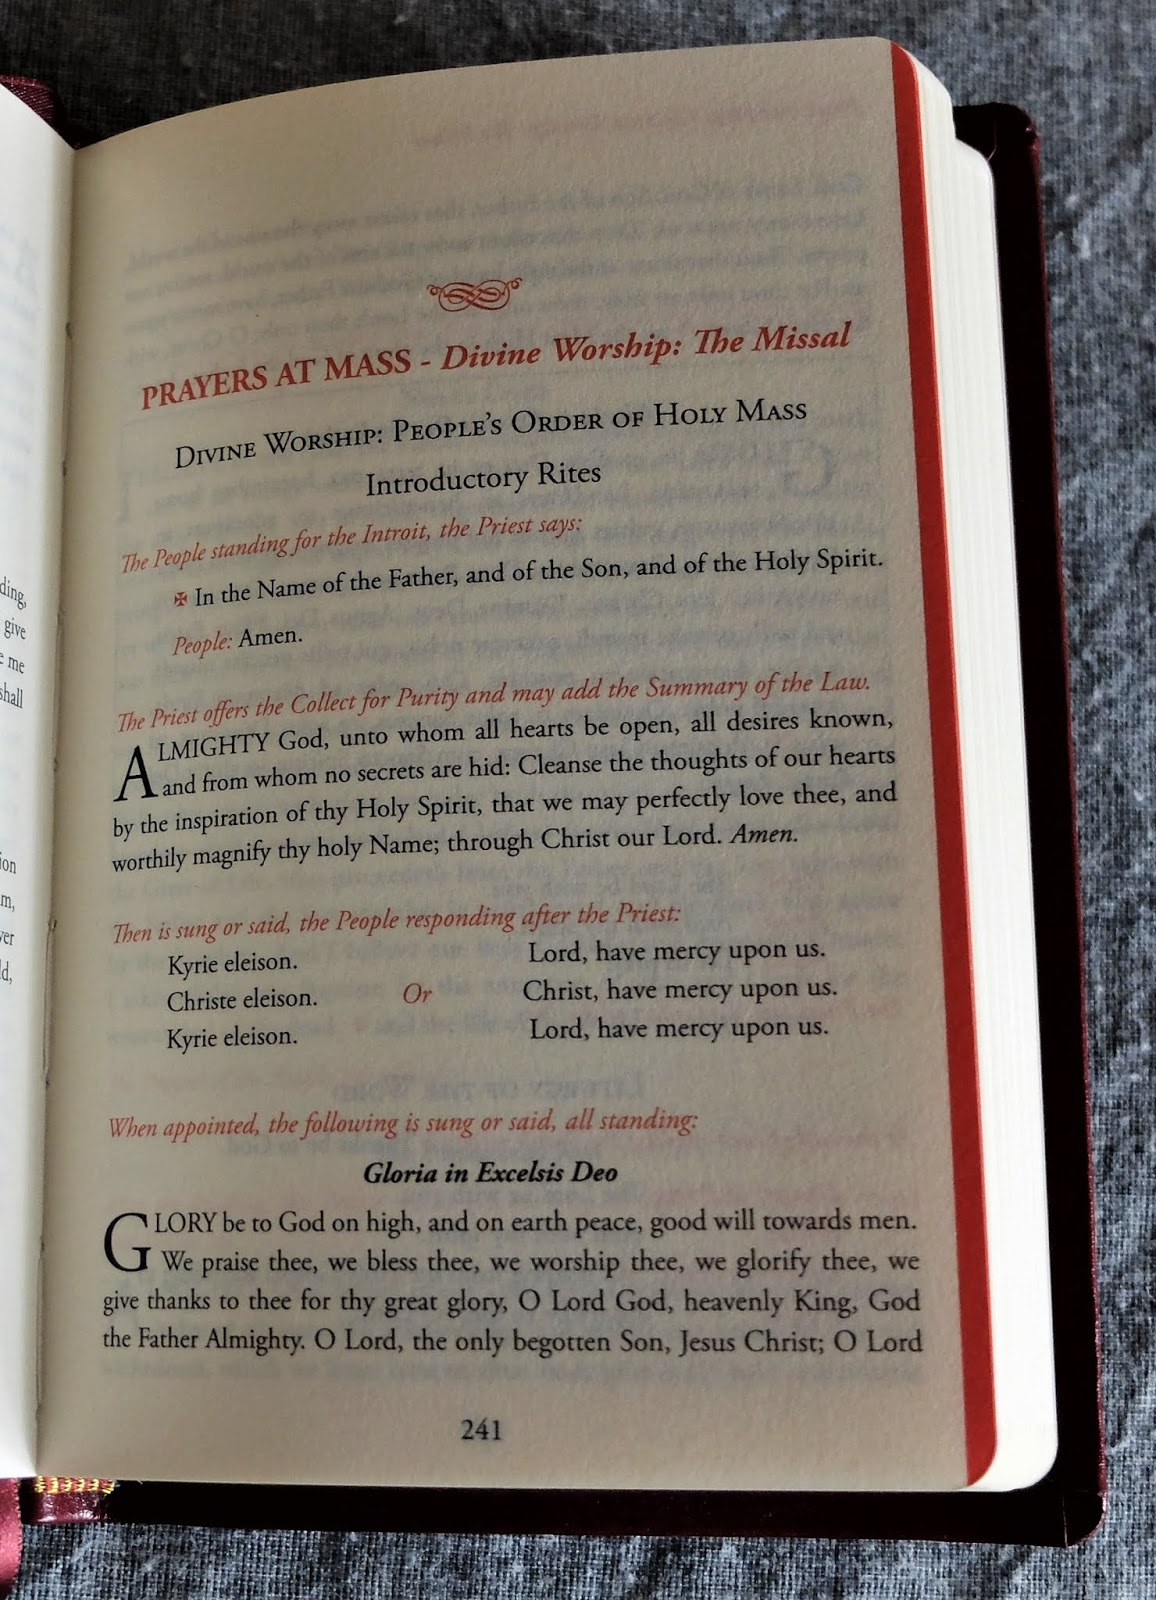 ding,
give
e me
shall
ion
m,
ver
ld,
PRAYERS AT MASS - Divine Worship: The Missal
Divine Worship: People's Order of Holy Mass
Introductory Rites
The People standing for the Introit, the Priest says:
✠ In the Name of the Father, and of the Son, and of the Holy Spirit.
People: Amen.
The Priest offers the Collect for Purity and may add the Summary of the Law.
ALMIGHTY God, unto whom all hearts be open, all desires known,
and from whom no secrets are hid: Cleanse the thoughts of our hearts
by the inspiration of thy Holy Spirit, that we may perfectly love thee, and
worthily magnify thy holy Name; through Christ our Lord. Amen.
Then is sung or said, the People responding after the Priest:
Kyrie eleison. Lord, have mercy upon us.
Christe eleison. Or Christ, have mercy upon us.
Kyrie eleison. Lord, have mercy upon us.
When appointed, the following is sung or said, all standing:
Gloria in Excelsis Deo
GLORY be to God on high, and on earth peace, good will towards men.
We praise thee, we bless thee, we worship thee, we glorify thee, we
give thanks to thee for thy great glory, O Lord God, heavenly King, God
the Father Almighty. O Lord, the only begotten Son, Jesus Christ; O Lord
241